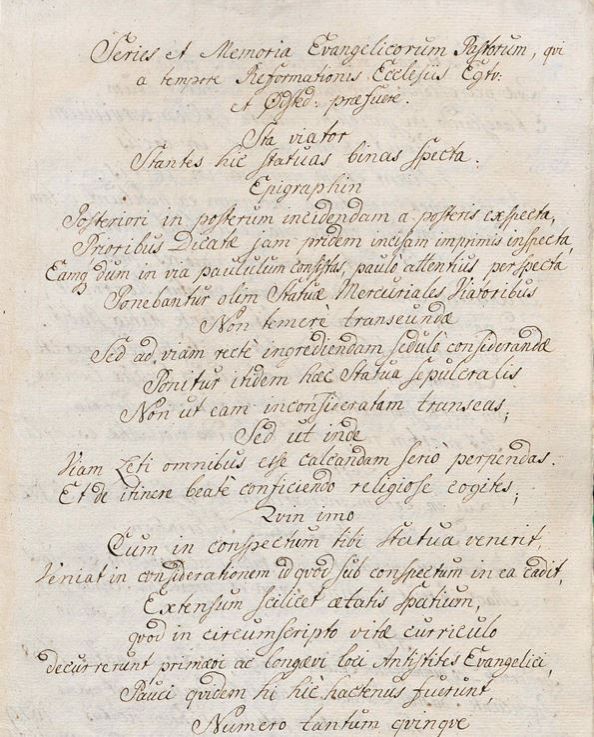 Series et Memoria Evangelicorum Pastorum, qui
a tempore Reformationis Ecclesiis Egtv:
et Ødsted: præfuere.
Sta viator
Stantes hic statuas binas specta.
Epigraphin
Posteriori in posterum incidendam a posteris exspecta,
Prioribus Dicatè jam pridem incisam inprimis inspecta,
Eamq dum in via paululum consistas, paulò attentius perspecta
Ponebantur olim Statuæ Mercuriales Viatoribus
Non temerè transeundæ
Sed ad viam rectè ingrediendam sedulò considerandæ
Ponitur itidem hæc Statua sepulcralis
Non ut eam inconsideratam transeas,
Sed ut inde
Viam Leti omnibus esse calcandam serio perpendas.
Et de itinere beatè conficiendo religiose cogites;
Qvin imo
Cum in conspectum tibi statua venerit,
Veniat in considerationem id qvod sub conspectum in ea cadit,
Extensum scilicet ætatis spatium,
qvod in circumscripto vitæ curriculo
decurrerunt primævi ac longævi loci Antistites Evangelici,
Pauci qvidem hi hìc hactenus fuerunt
Numero tantum qvinqve